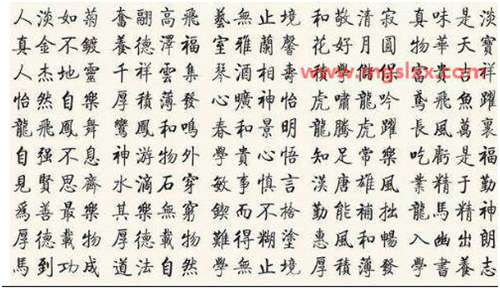 人淡如菊 奮翮高飛 藝無止境 和敬清寂 真味是淡
真金不鍍 養德澤福 室雅蘭馨 花好月圓 物華天寶
人杰地靈 千祥雲集 琴酒相壽 吉祥
怡然自樂 厚積薄發 心曠神怡 虎嘯龍吟 鳶飛魚躍
龍飛鳳舞 鸞鳳和鳴 春和景明 龍騰虎躍 長風萬裏
自强不息 神游物外 學貴心悟 知足常樂 吃虧是福
見賢思齊 水滴石穿 敏事慎言 漢唐雄風 業精于勤
爲善最樂 其樂無窮 鍥而不捨 勤能補拙 龍馬精神
厚德載物 厚德載物 難得糊塗 惠風和暢 入幽出朗
馬到功成 道法自然 學無止境 厚積薄發 學書養志